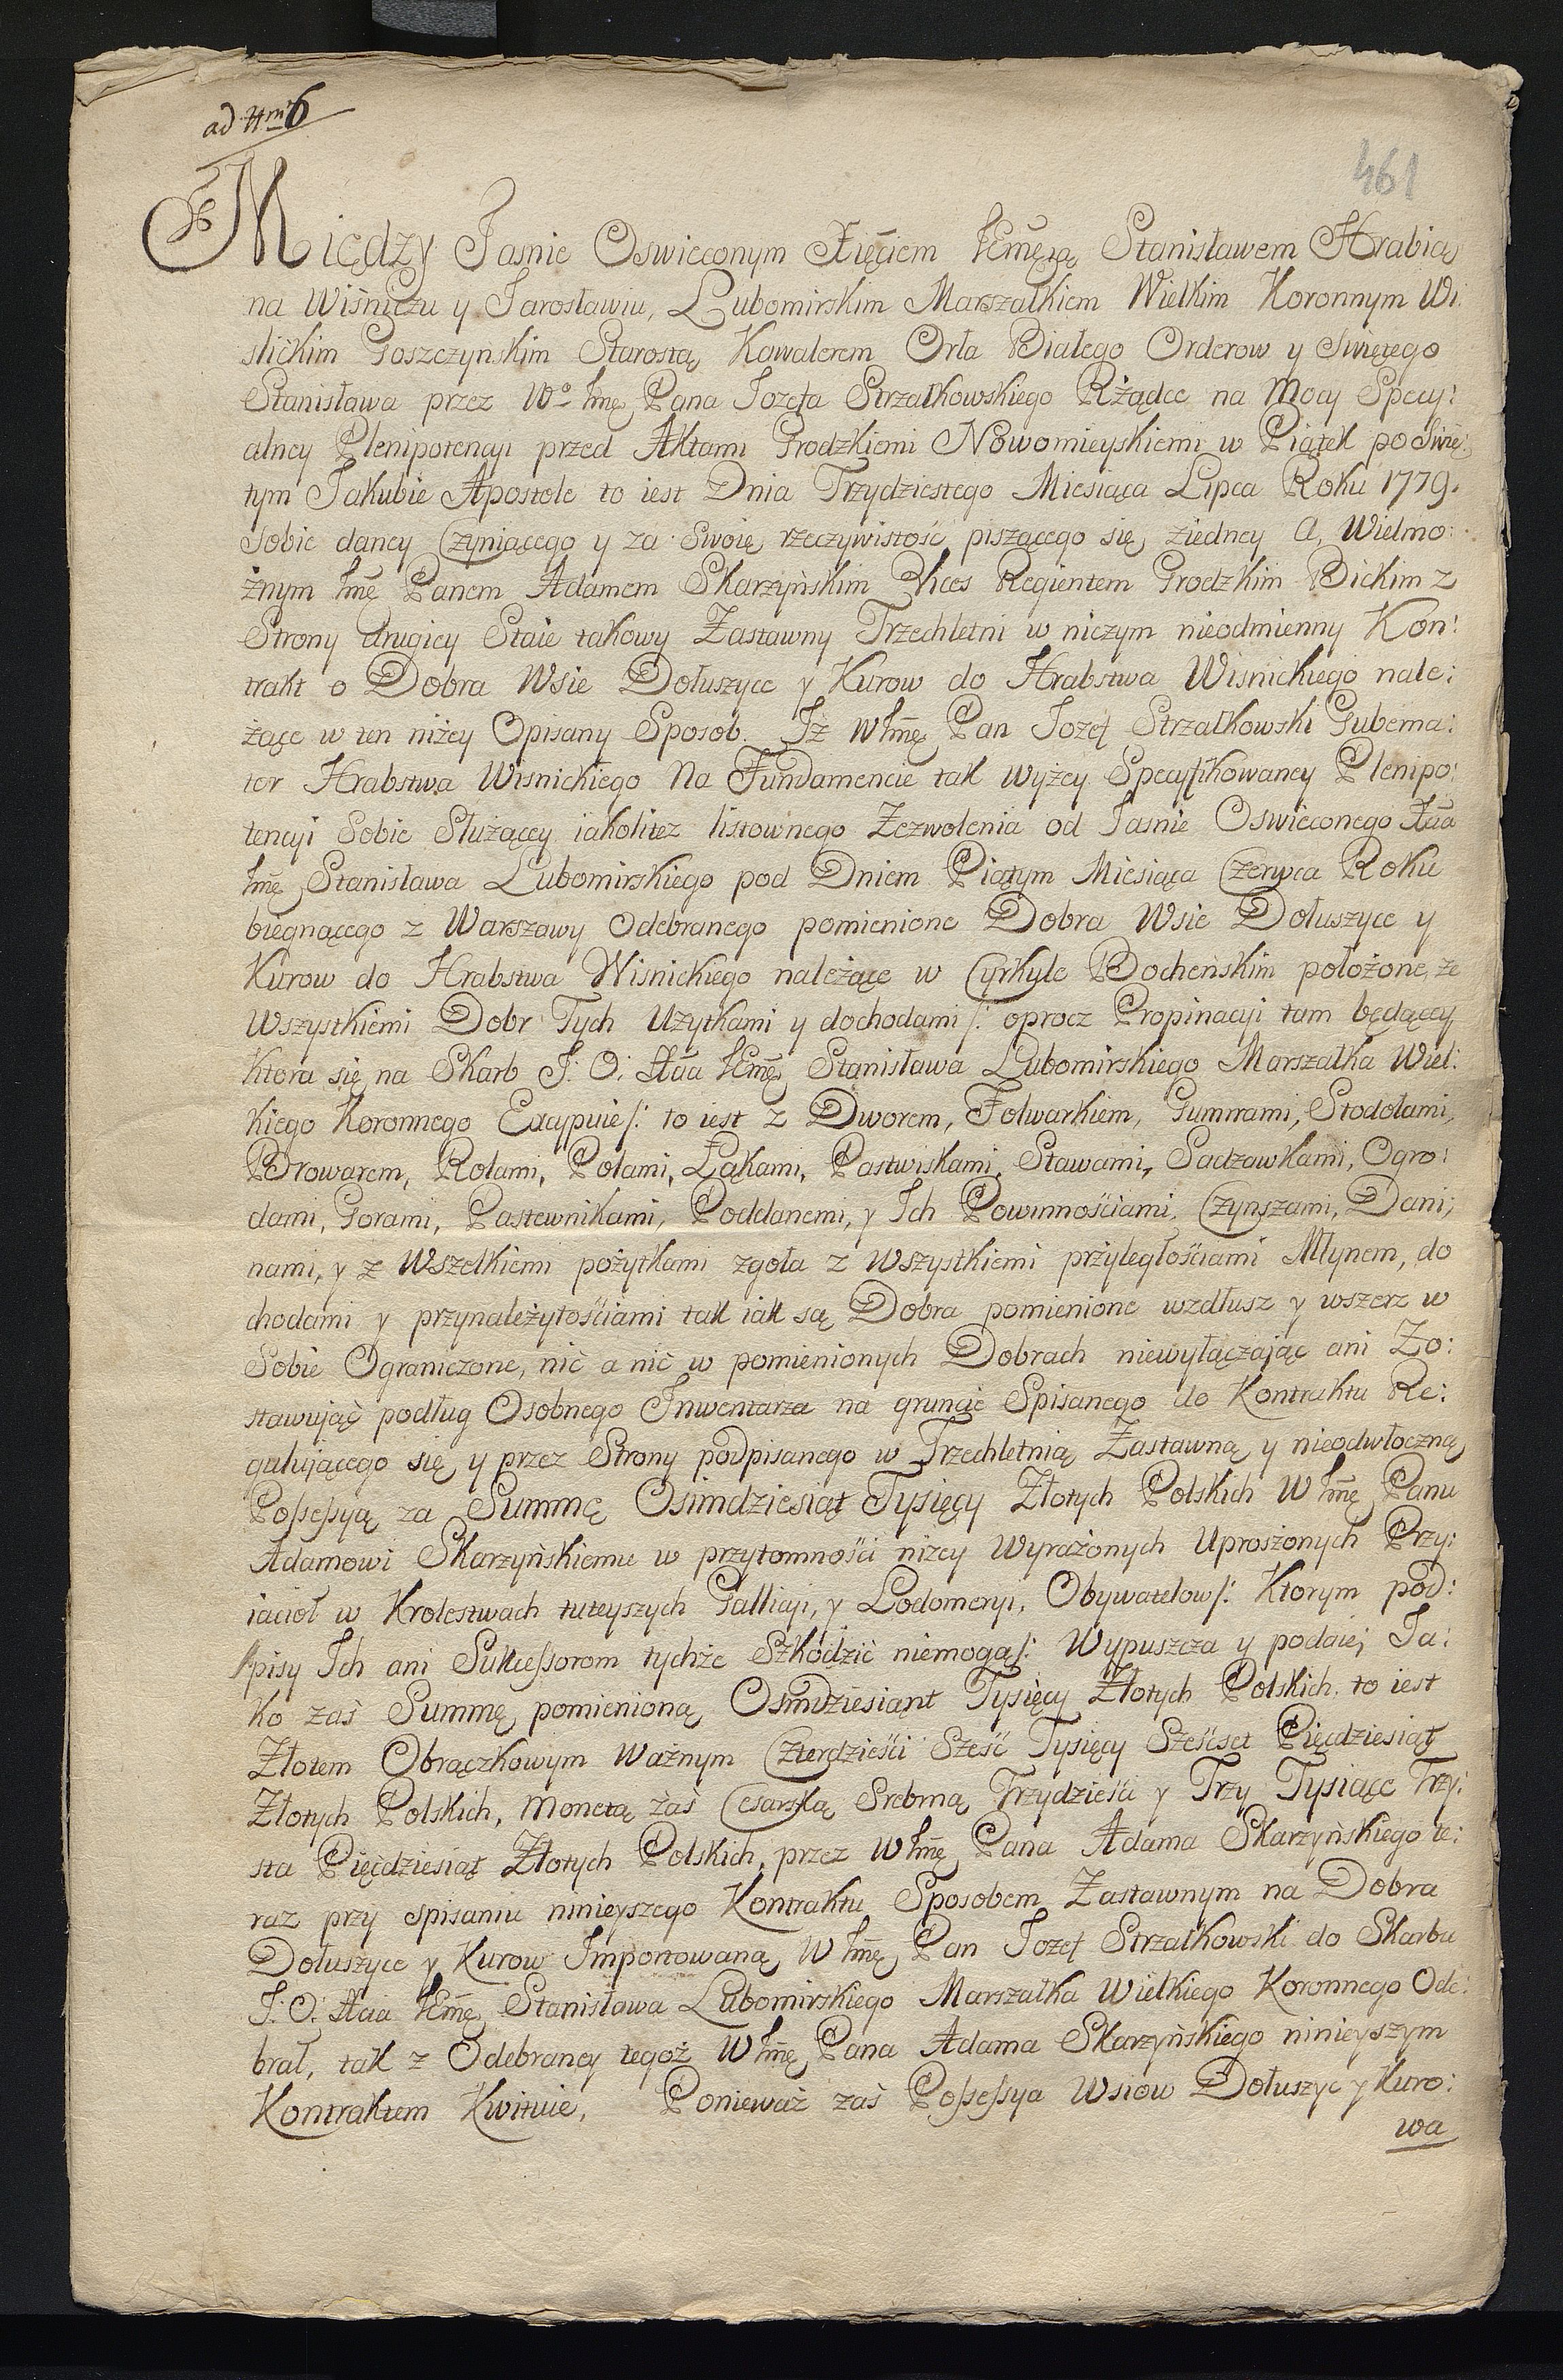 ad Nrm 6
461
Między Jasnie Oswieconym Xięciem JEmcią Stanisławem Hrabią
na Wiśniczu y Jarosławiu, Lubomirskim Marszałkiem Wielkim Koronnym Wi:
slickim Goszczynskim Starostą Kawalerem Orła Białego Orderow y Swiętego
Stanisława przez Wo Jmę Pana Jozefa Strzałkowskiego Rżądce na Mocy Specy:
alney Plenipotencyi przed Aktami Grodzkiemi Nowomieyskiemi w Piątek po Swię:
tym Jakubie Apostole to iest Dnia Trzydziestego Miesiąca Lipca Roku 1779.
Sobie daney Czyniącego y za Swoię rzeczywistość piszącego się ziedney A, Wielmo:
żnym Jmę Panem Adamem Skarzyńskim Vices Regientem Grodzkim Bickim z
Strony drugiey Staie takowy Zastawny Trzechletni w niczym nieodmienny Kon:
trakt o Dobra Wsie Dołuszyce y Kurow do Hrabstwa Wisnickiego nale:
żące w ten niżey Opisany Sposob. Iż WJmę Pan Jozef Strzałkowski Guberna:
tor Hrabstwa Wisnickiego Na Fundamencie tak wyżey Specyfikowaney Plenipo:
tencyi Sobie Służącey iakolitez listownego Zezwolenia od Jasnie Oswieconego Xcia
Jmę Stanisława Lubomirskiego pod Dniem Piątym Miesiąca Czerwca Roku
biegnącego z Warszawy Odebranego pomienione Dobra Wsie Dołuszyce y
Kurow do Hrabstwa Wisnickiego należące w Cyrkyle Bocheńskim położone, ze
Wszystkiemi Dobr Tych Użytkami y dochodami /: oprocz Propinacyi tam będącey
Ktora się na Skarb J: O: Xcia JEmę Stanisława Lubomirskiego Marszałka Wiel:
kiego Koronnego Excypuie /: to iest z Dworem, Folwarkiem, Gumnami, Stodołami,
Browarem, Rolami, Polami, Łąkami, Pastwiskami, Stawami, Sadzawkami, Ogro:
dami, Gorami, Pastewnikami, Poddanemi, y Ich Powinnościami, Czynszami, Dani;
nami, y z Wszelkiemi pożytkami zgoła z Wszystkiemi przyległościami Młynem, do
chodami y przynależytościami tak iak są Dobra pomienione wzdłusz y wszerz w
Sobie Ograniczone, nic a nic w pomienionych Dobrach niewyłączając ani Zo:
stawując podług Osobnego Inwentarza na gruncie Spisanego do Kontraktu Re:
gulującego się y przez Strony podpisanego w Trzechletnią Zastawną y nieodwłoczną
Possessyą za Summę Osimdziesiąt Tysięcy Złotych Polskich WJmę Panu
Adamowi Skarzyńskiemu w przytomności niżey Wyrażonych Uproszonych Przy:
iacioł w Krolestwach tuteyszych Gallicyi, y Lodomeryi, Obywatelow /: Ktorym pod:
pisy Ich ani Sukcessorom tychże Szkodzić niemogą /: Wypuszcza y podaie; Ja:
ko zaś Summę pomienioną Osimdziesiąnt Tysięcy Złotych Polskich to iest
Złotem Obrączkowym Ważnym Czterdzieści Sześć Tysięcy Sześcset Pięcdziesiąt
Złotych Polskich, Monetą zaś Cesarską Srebrną Trzydzieści y Trzy Tysiące Trzy:
sta Pięcdziesiąt Złotych Polskich, przez WJmę Pana Adama Skarzyńskiego te:
raz przy spisaniu ninieyszego Kontraktu Sposobem Zastawnym na Dobra
Dołuszyce y Kurow Importowaną WJmę Pan Jozef Strzałkowski do Skarbu
J: O: Xcia JEmę Stanisława Lubomirskiego Marszałka Wielkiego Koronnego Ode:
brał, tak z Odebraney tegoż WJmę Pana Adama Skarzyńskiego ninieyszym
Kontraktem Kwituie. Ponieważ zaś Possessya Wsiow Dołuszyc y Kuro:
wa